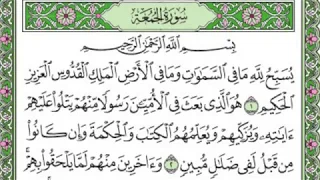 سُورَةُ الْجُمُعَةِ
بِسْمِ اللَّهِ الرَّحْمَٰنِ الرَّحِيمِ
يُسَبِّحُ لِلَّهِ مَا فِي السَّمَٰوَٰتِ وَمَا فِي الْأَرْضِ الْمَلِكِ الْقُدُّوسِ الْعَزِيزِ
الْحَكِيمِ ١ هُوَ الَّذِي بَعَثَ فِي الْأُمِّيِّينَ رَسُولًا مِّنْهُمْ يَتْلُوا عَلَيْهِمْ
ءَايَٰتِهِ وَيُزَكِّيهِمْ وَيُعَلِّمُهُمُ الْكِتَٰبَ وَالْحِكْمَةَ وَإِن كَانُوا
مِن قَبْلُ لَفِي ضَلَٰلٍ مُّبِينٍ ٢ وَءَاخَرِينَ مِنْهُمْ لَمَّا يَلْحَقُوا بِهِمْ